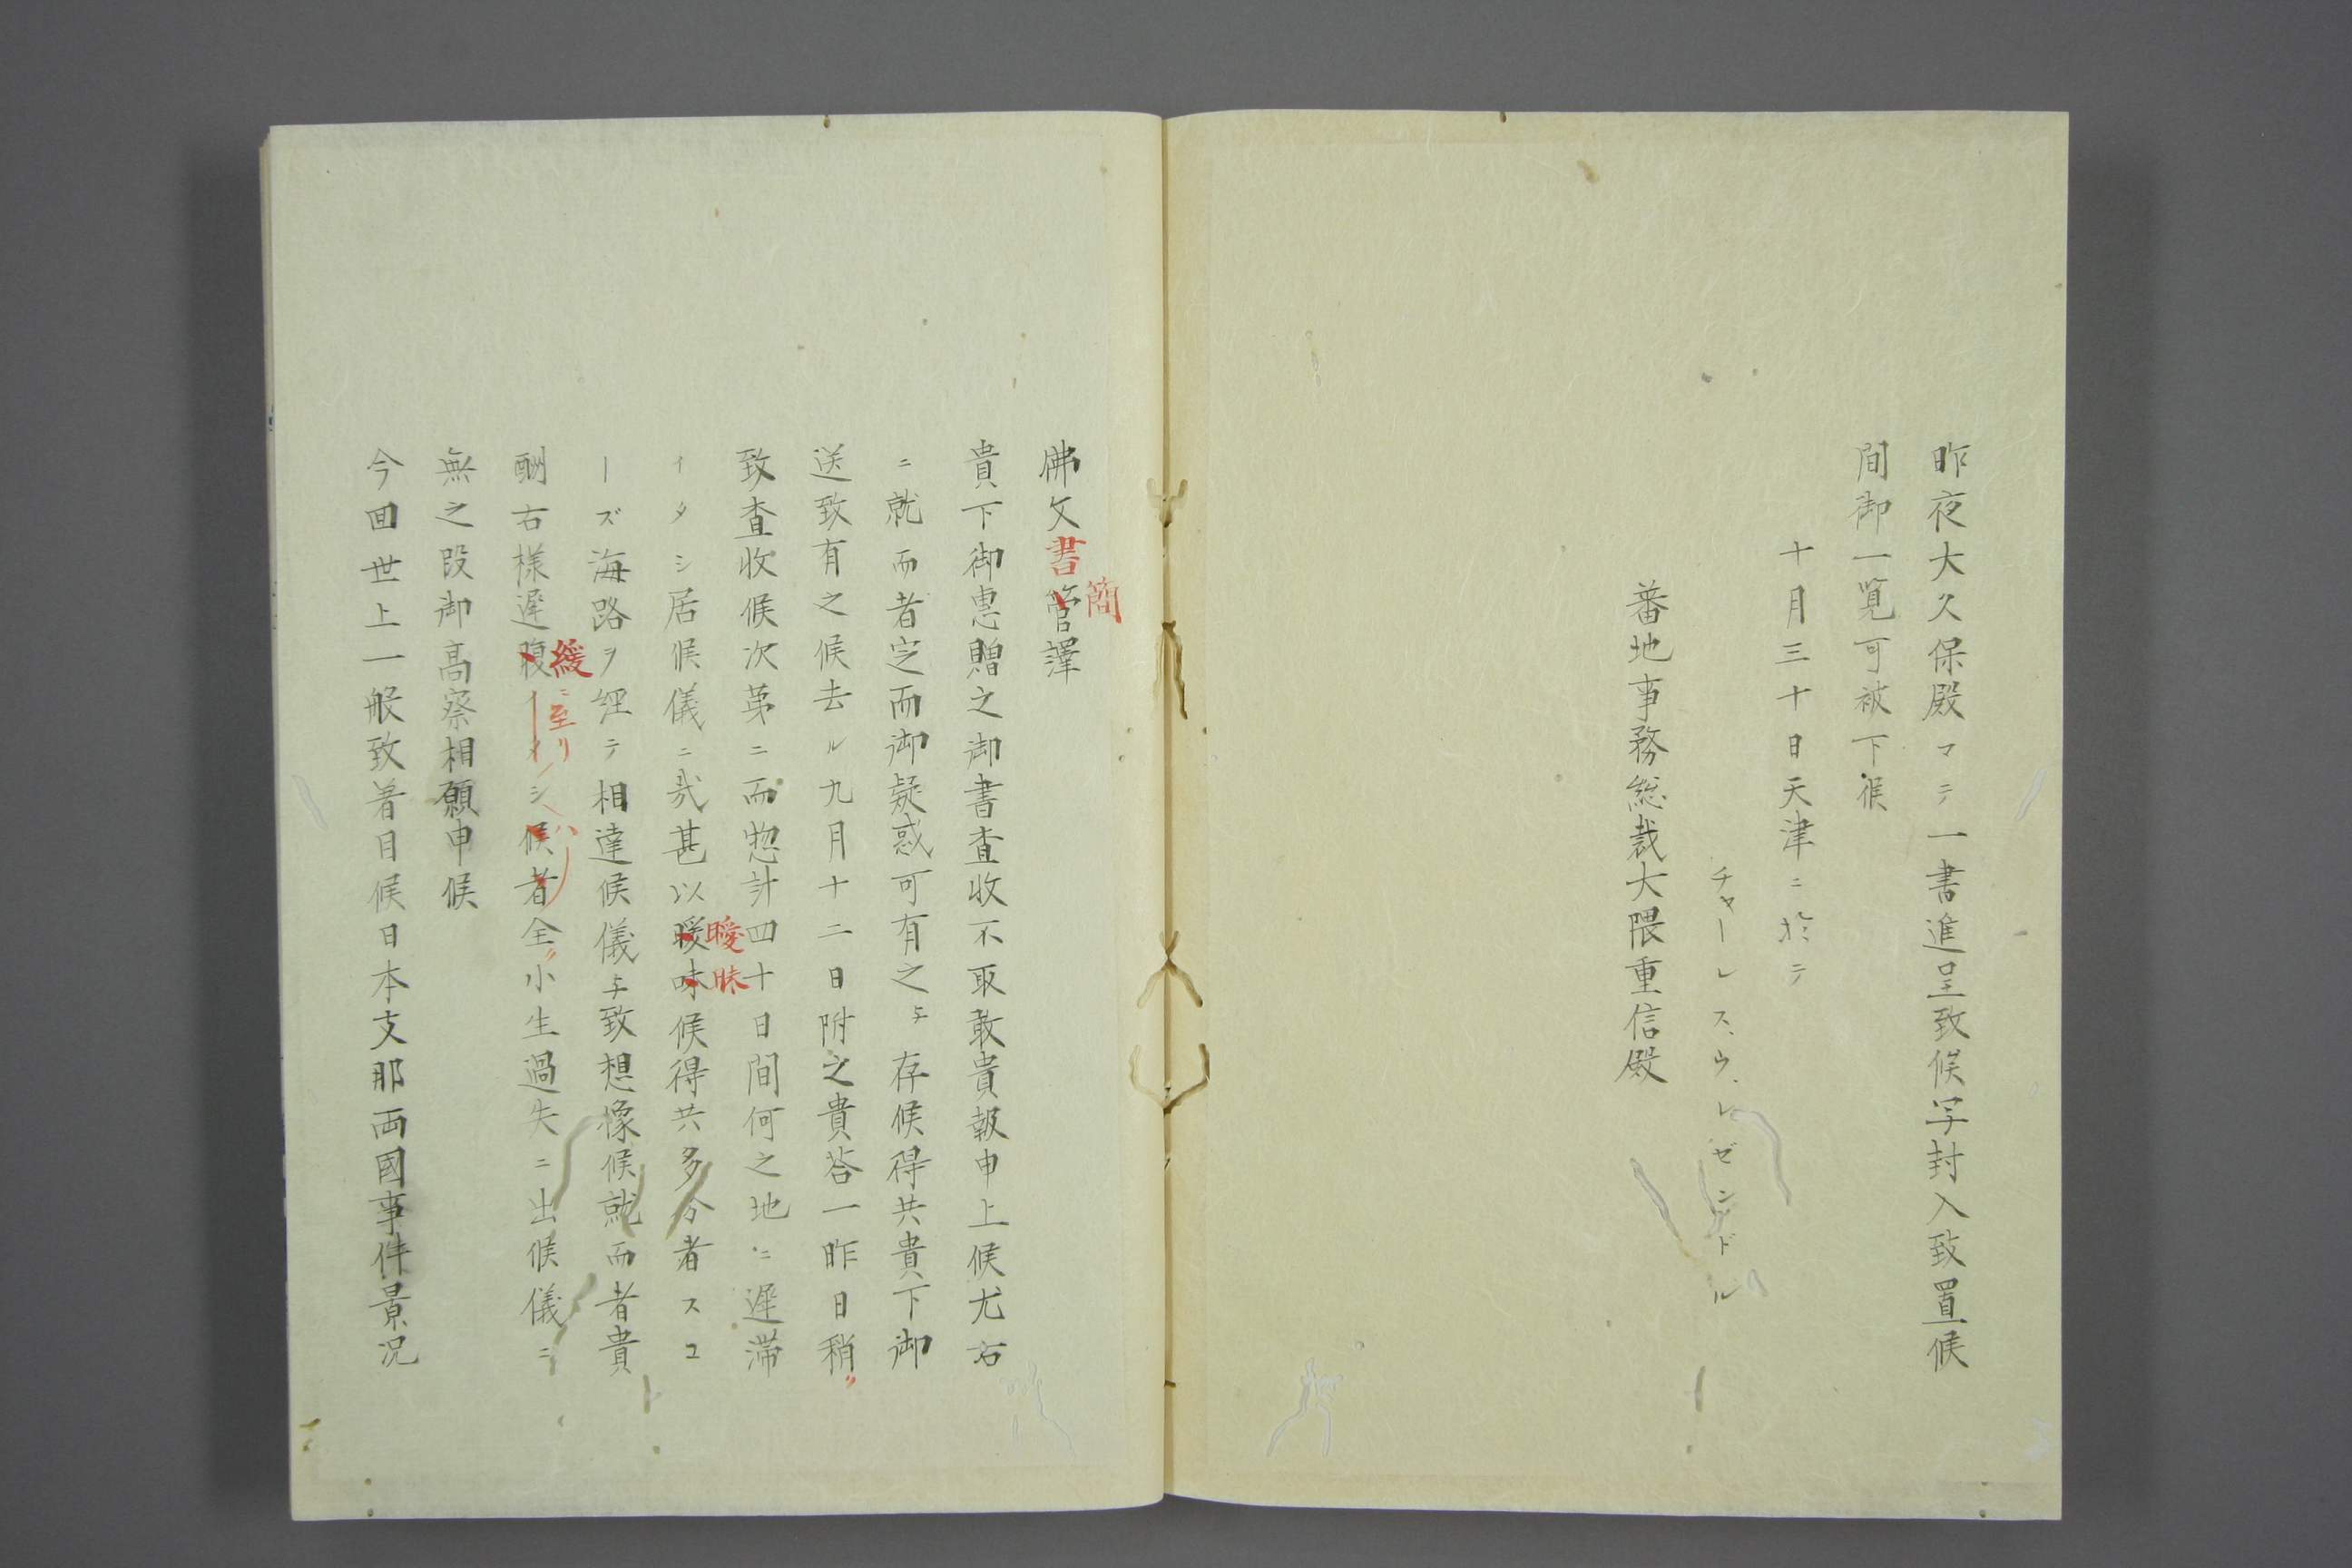 昨夜大久保殿マテ一書進呈致候写封入致置候
間御一覧可被下候
十月三十日天津ニ於テ
チャーレス、ウ、レゼンドル
蕃地事務総裁大隈重信殿
佛文書管譯
簡
貴下御恵贈之御書査收不取敢貴報申上候尤右
ニ就而者定而御疑惑可有之ト存候得共貴下御
送致有之候去ル九月十二日附之貴答一昨日稍〻
致査收候次第ニ而惣計四十日間何之地ニ遅滞
イタシ居候儀ニ哉甚以暧味候得共多分者スユ
曖昧
ーズ海路ヲ経テ相達候儀ト致想像候就而者貴
酬右様遅腹イタシ候者全〻小生過失ニ出候儀ニ
緩ニ至リシハ
無之段御高察相願申候
今回世上一般致着目候日本支那両國事件景况